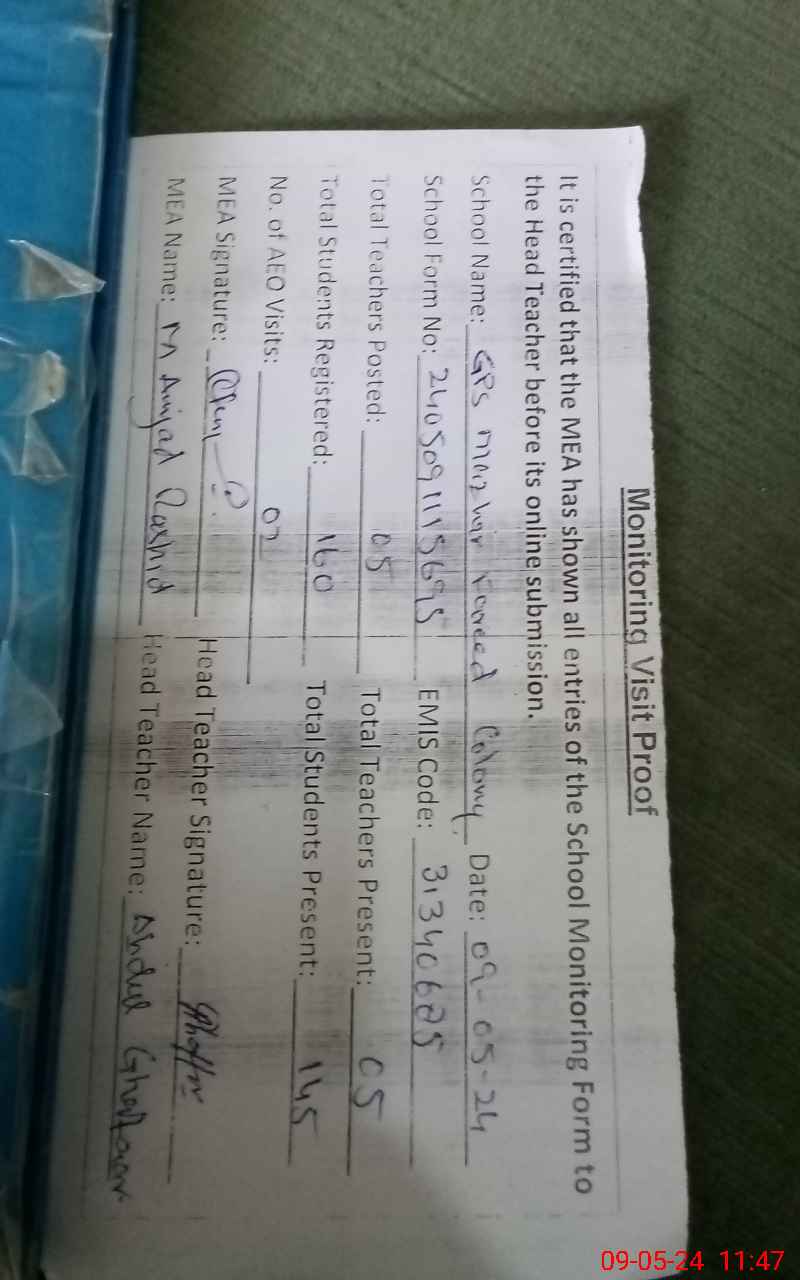 Monitoring Visit Proof
It is certified that the MEA has shown all entries of the School Monitoring Form to
the Head Teacher before its online submission.
School Name: GPS Mazhar Fareed Colony Date: 09-05-24
School Form No: 24050911115695 EMIS Code: 31340685
Total Teachers Posted: 05 Total Teachers Present: 05
Total Students Registered: 160 Total Students Present: 145
No. of AEO Visits: 02
MEA Signature: Head Teacher Signature:
MEA Name: M Amjad Rashid Head Teacher Name: Abdul Ghaffar
09-05-24 11:47